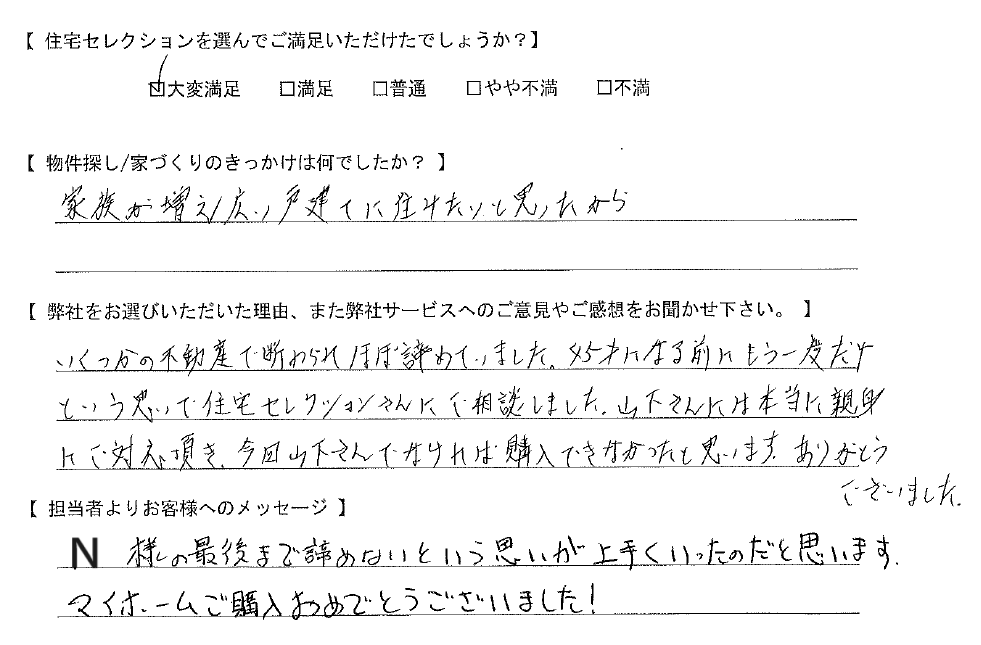 【 住宅セレクションを選んでご満足いただけたでしょうか？】
☑大変満足 □満足 □普通 □やや不満 □不満
【 物件探し/家づくりのきっかけは何でしたか？ 】
家族が増え広い戸建てに住みたいと思ったから
【 弊社をお選びいただいた理由、また弊社サービスへのご意見やご感想をお聞かせ下さい。 】
いくつかの不動産で断わられほぼ諦めていました。45才になる前にもう一度だけ
という思いで住宅セレクションさんにご相談しました。山下さんには本当に親身
にご対応頂き、今回山下さんでなければ購入できなかったと思います。ありがとう
ございました。
【 担当者よりお客様へのメッセージ 】
N 様の最後まで諦めないという思いが上手くいったのだと思います。
マイホームご購入おめでとうございました！